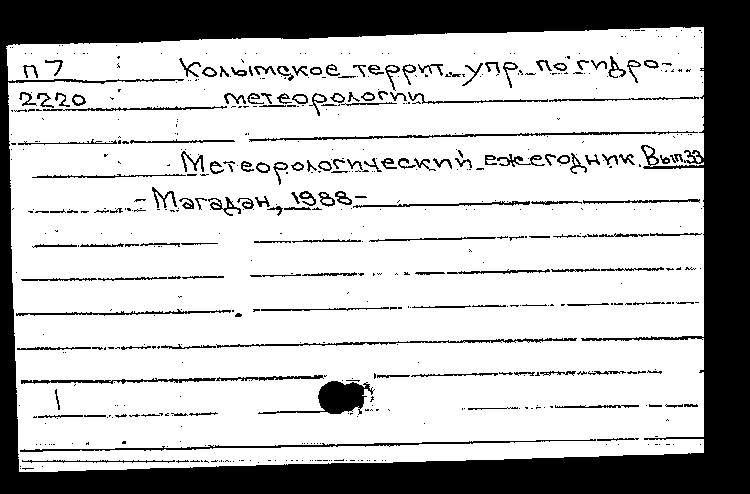 п7 Колымское террит. упр. по гидро-
2220 метеорологии
Метеорологический ежегодник. Вып.33
- Магадан, 1988-